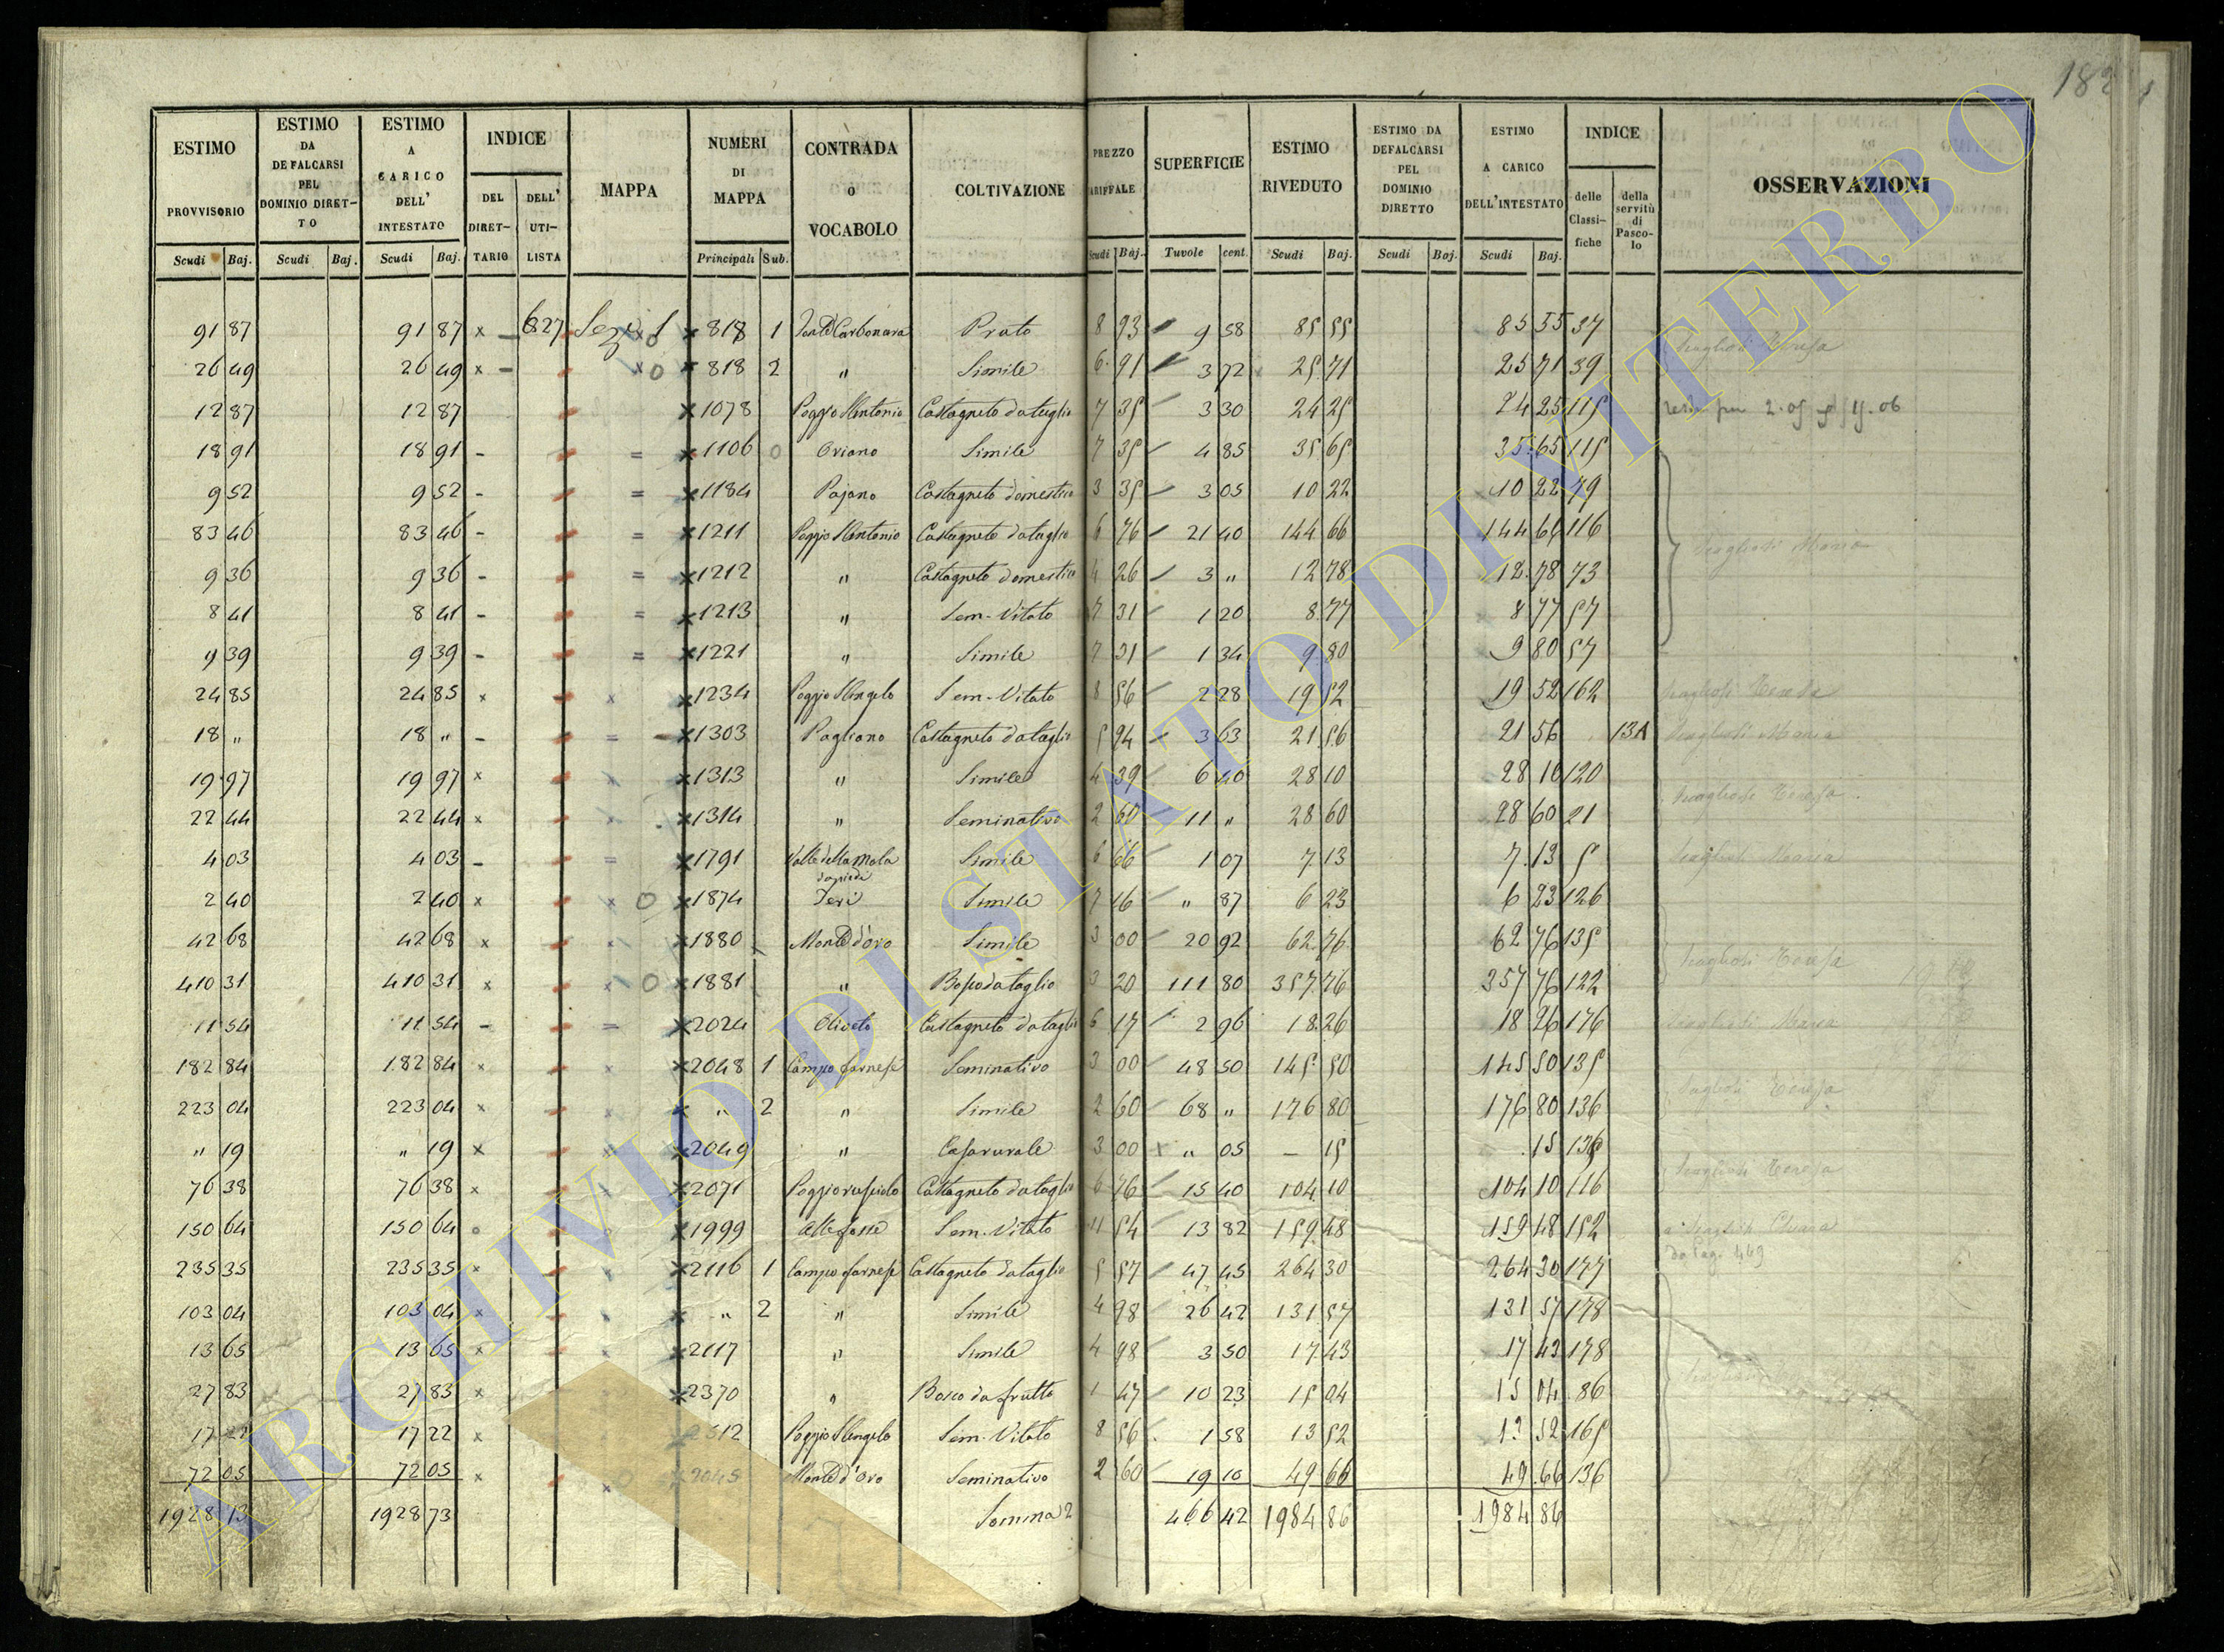 182
ESTIMO PROVVISORIO Scudi Baj.
ESTIMO DA DEFALCARSI PEL DOMINIO DIRETTO Scudi Baj.
ESTIMO A CARICO DELL' INTESTATO Scudi Baj.
INDICE DEL DIRETTARIO DELL' UTILISTA
MAPPA
NUMERI DI MAPPA Principali Sub.
CONTRADA O VOCABOLO
COLTIVAZIONE
PREZZO TARIFFALE Scudi Baj.
SUPERFICIE Tavole cent.
ESTIMO RIVEDUTO Scudi Baj.
ESTIMO DA DEFALCARSI PEL DOMINIO DIRETTO Scudi Baj.
ESTIMO A CARICO DELL'INTESTATO Scudi Baj.
INDICE delle Classifiche della servitù di Pascolo
OSSERVAZIONI
91 87 91 87 x - 627 818 1 Prato 8 93 9 58 85 55 85 55 37
26 49 26 49 x - 818 2 " Simile 6 91 3 72 25 71 25 71 39
12 87 12 87 1078 Poggio S Antonio Castagneto da taglio 7 35 3 30 24 25 24 25 115
18 91 18 91 - = 1106 Oriano Simile 7 35 4 85 35 65 35 65 115
9 52 9 52 - = 1184 Pajano Castagneto domestico 3 35 3 05 10 22 10 22 79
83 46 83 46 - = 1211 Poggio S Antonio Castagneto da taglio 6 76 21 40 144 66 144 66 116
9 36 9 36 - = 1212 " Castagneto domestico 4 26 3 " 12 78 12 78 73
8 41 8 41 - = 1213 " Sem. Vitato 7 31 1 20 8 77 8 77 57
9 39 9 39 - = 1221 " Simile 7 31 1 34 9 80 9 80 57
24 85 24 85 x x 1234 Poggio S Angelo Sem. Vitato 8 56 2 28 19 52 19 52 162
18 " 18 " - = 1303 Pagliano Castagneto da taglio 5 94 3 63 21 56 21 56 131
19 97 19 97 x x 1313 " Simile 4 39 6 40 28 10 28 10 120
22 44 22 44 x x 1314 " Seminativo 2 60 11 " 28 60 28 60 21
4 03 4 03 - = 1791 Valle della Mola Simile 6 66 1 07 7 13 7 13 5
2 40 2 40 x x O 1874 Simile 7 16 " 87 6 23 6 23 126
42 68 42 68 x x 1880 Monte d'oro Simile 3 00 20 92 62 76 62 76 135
410 31 410 31 x x O 1881 " Bosco da taglio 3 20 111 80 357 76 357 76 122
11 54 11 54 - = 2024 Oliveto Castagneto da taglio 6 17 2 96 18 26 18 26 176
182 84 182 84 x x 2048 1 Campo farnese Seminativo 3 00 48 50 145 50 145 50 135
223 04 223 04 x x " 2 " Simile 2 60 68 " 176 80 176 80 136
" 19 " 19 x x 2049 " Casa rurale 3 00 " 05 - 15 15 136
76 38 76 38 x x 2071 Castagneto da taglio 6 76 15 40 104 10 104 10 116
150 64 150 64 o x 1999 Sem. Vitato 11 54 13 82 159 48 159 48 152
da Pag. 449
235 35 235 35 x x 2116 1 Campo farnese Castagneto da taglio 5 57 47 45 264 30 264 30 177
103 04 103 04 x x " 2 " Simile 4 98 26 42 131 57 131 57 178
13 65 13 65 x x 2117 " Simile 4 98 3 50 17 43 17 43 178
27 83 27 83 x 2370 " Bosco da frutto 1 47 10 23 15 04 15 04 86
17 22 17 22 x Poggio S Angelo Sem. Vitato 8 56 1 58 13 52 13 52 165
72 05 72 05 x 2045 Monte d'Oro Seminativo 2 60 19 10 49 66 49 66 136
1928 73 1928 73 Somma 466 42 1984 86 1984 86
ARCHIVIO DI STATO DI VITERBO